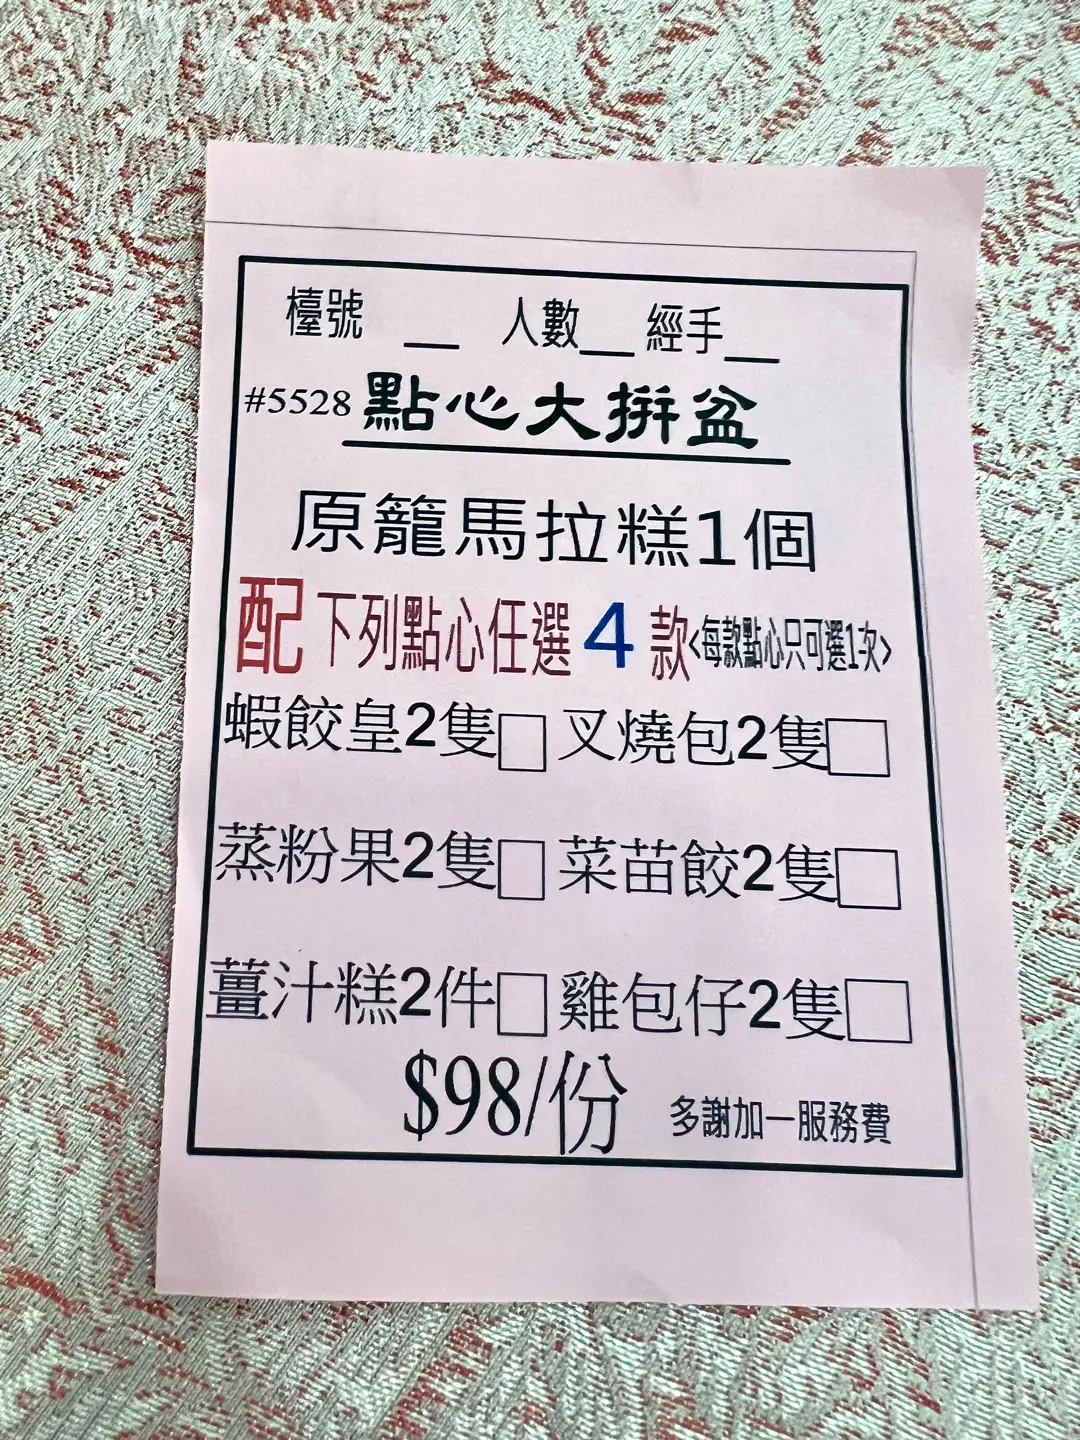 檯號 __ 人數__ 經手__
#5528 點心大拼盆
原籠馬拉糕1個
配下列點心任選4款<每款點心只可選1次>
蝦餃皇2隻□ 叉燒包2隻□
蒸粉果2隻□ 菜苗餃2隻□
薑汁糕2件□ 雞包仔2隻□
$98/份 多謝加一服務費